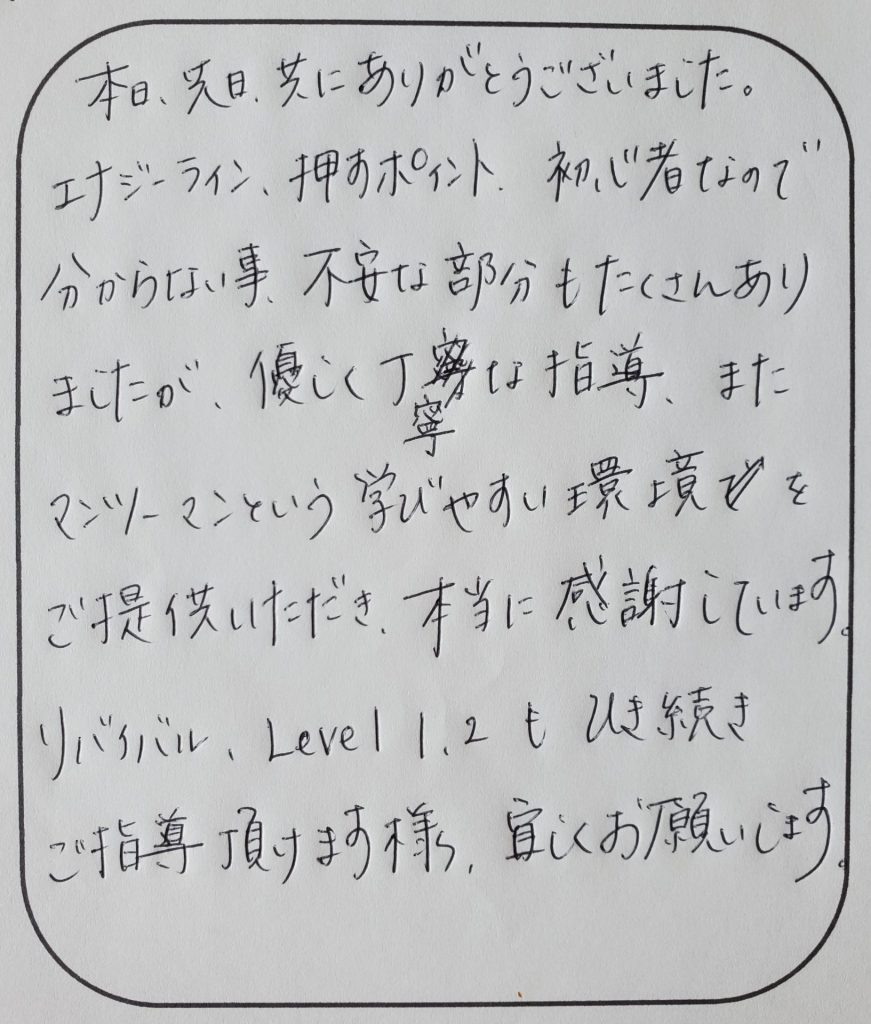 本日、先日、共にありがとうございました。
エナジーライン、押すポイント、初心者なので
分からない事、不安な部分もたくさんあり
ましたが、優しく丁寧な指導、また
マンツーマンという学びやすい環境を
ご提供いただき、本当に感謝しています。
リバイバル、Level 1、2も ひき続き
ご指導頂けます様、宜しくお願いします。